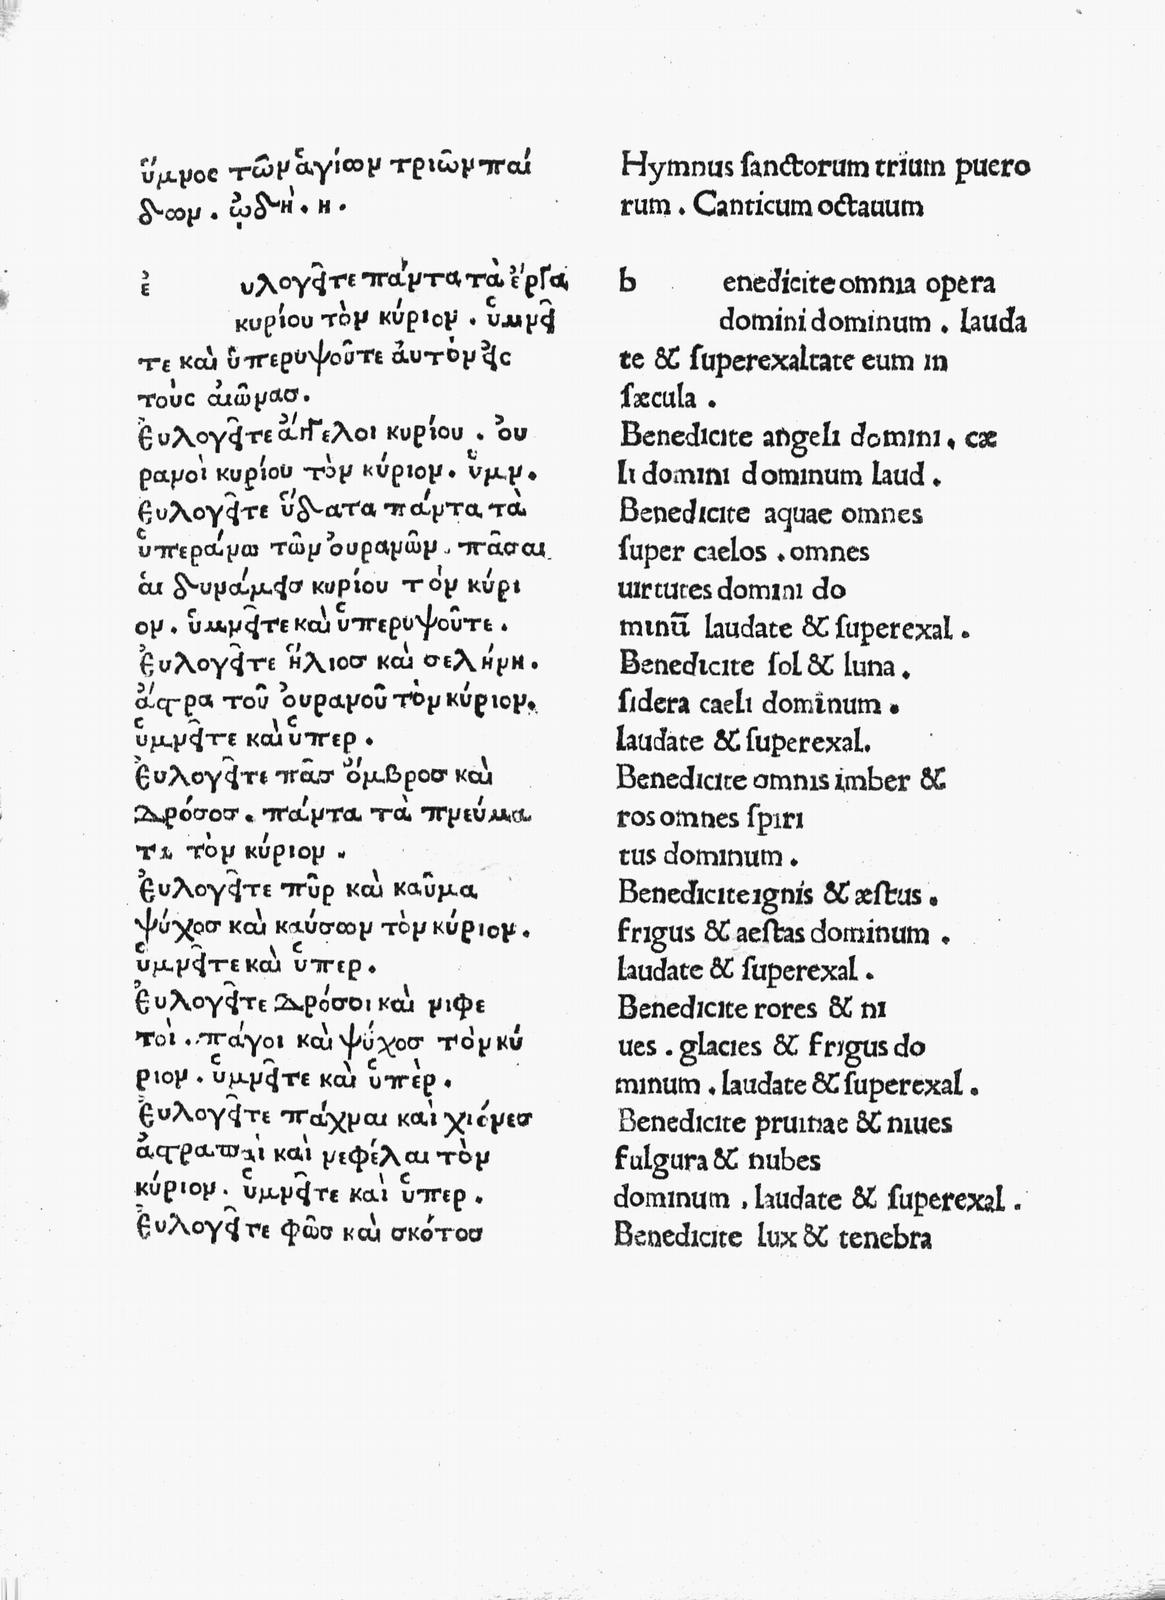 ὕμνος τῶν ἁγίων τριῶν παί
δων . ᾠδὴ . η .
ἐ υλογεῖτε πάντα τὰ ἔργα
κυρίου τὸν κύριον . ὑμνεῖ
τε καὶ ὑπερυψοῦτε ἀυτὸν εἰς
τοὺς ἀιῶνασ .
Ἐυλογεῖτε ἄγγελοι κυρίου . ὀυ
ρανοὶ κυρίου τὸν κύριον . ὑμν .
Ἐυλογεῖτε ὕδατα πάντα τὰ
ὑπεράνω τῶν ὀυρανῶν . πᾶσαι
ἁι δυνάμεισ κυρίου τὸν κύρι
ον . ὑμνεῖτε καὶ ὑπερυψοῦτε .
Ἐυλογεῖτε ἥλιοσ καὶ σελήνη .
ἄστρα τοῦ ὀυρανοῦ τὸν κύριον .
ὑμνεῖτε καὶ ὑπερ .
Ἐυλογεῖτε πᾶσ ὄμβροσ καὶ
Δρόσοσ . πάντα τὰ πνεύμα
τα τὸν κύριον .
Ἐυλογεῖτε πῦρ καὶ καῦμα
ψύχοσ καὶ καύσων τὸν κύριον .
ὑμνεῖτε καὶ ὑπερ .
Ἐυλογεῖτε Δρόσοι καὶ νιφε
τοὶ . πάγοι καὶ ψύχοσ τὸν κύ
ριον . ὑμνεῖτε καὶ ὑπὲρ .
Ἐυλογεῖτε πάχναι καὶ χιόνεσ
ἀστραπαὶ καὶ νεφέλαι τὸν
κύριον . ὑμνεῖτε καὶ ὑπερ .
Ἐυλογεῖτε φῶσ καὶ σκότοσ
Hymnus ſanctorum trium puero
rum . Canticum octauum
b enedicite omnia opera
domini dominum . lauda
te & ſuperexaltate eum in
ſæcula .
Benedicite angeli domini , cæ
li domini dominum laud .
Benedicite aquae omnes
ſuper caelos . omnes
uirtutes domini do
minū laudate & ſuperexal .
Benedicite ſol & luna .
ſidera caeli dominum .
laudate & ſuperexal.
Benedicite omnis imber &
ros omnes ſpiri
tus dominum .
Benedicite ignis & æſtus .
frigus & aeſtas dominum .
laudate & ſuperexal .
Benedicite rores & ni
ues . glacies & frigus do
minum . laudate & ſuperexal .
Benedicite pruinae & niues
fulgura & nubes
dominum . laudate & ſuperexal .
Benedicite lux & tenebra